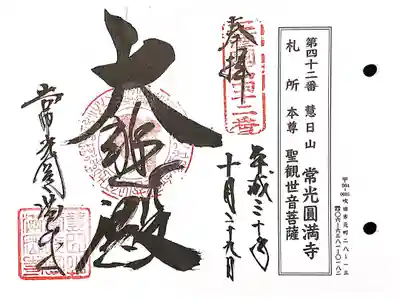 第四十二番 慧日山 常光圓満寺
札所 本尊 聖観世音菩薩
吹田市元町二八ー一三
奉拝
平成三十年
十月二十九日
大悲殿
常光圓満寺